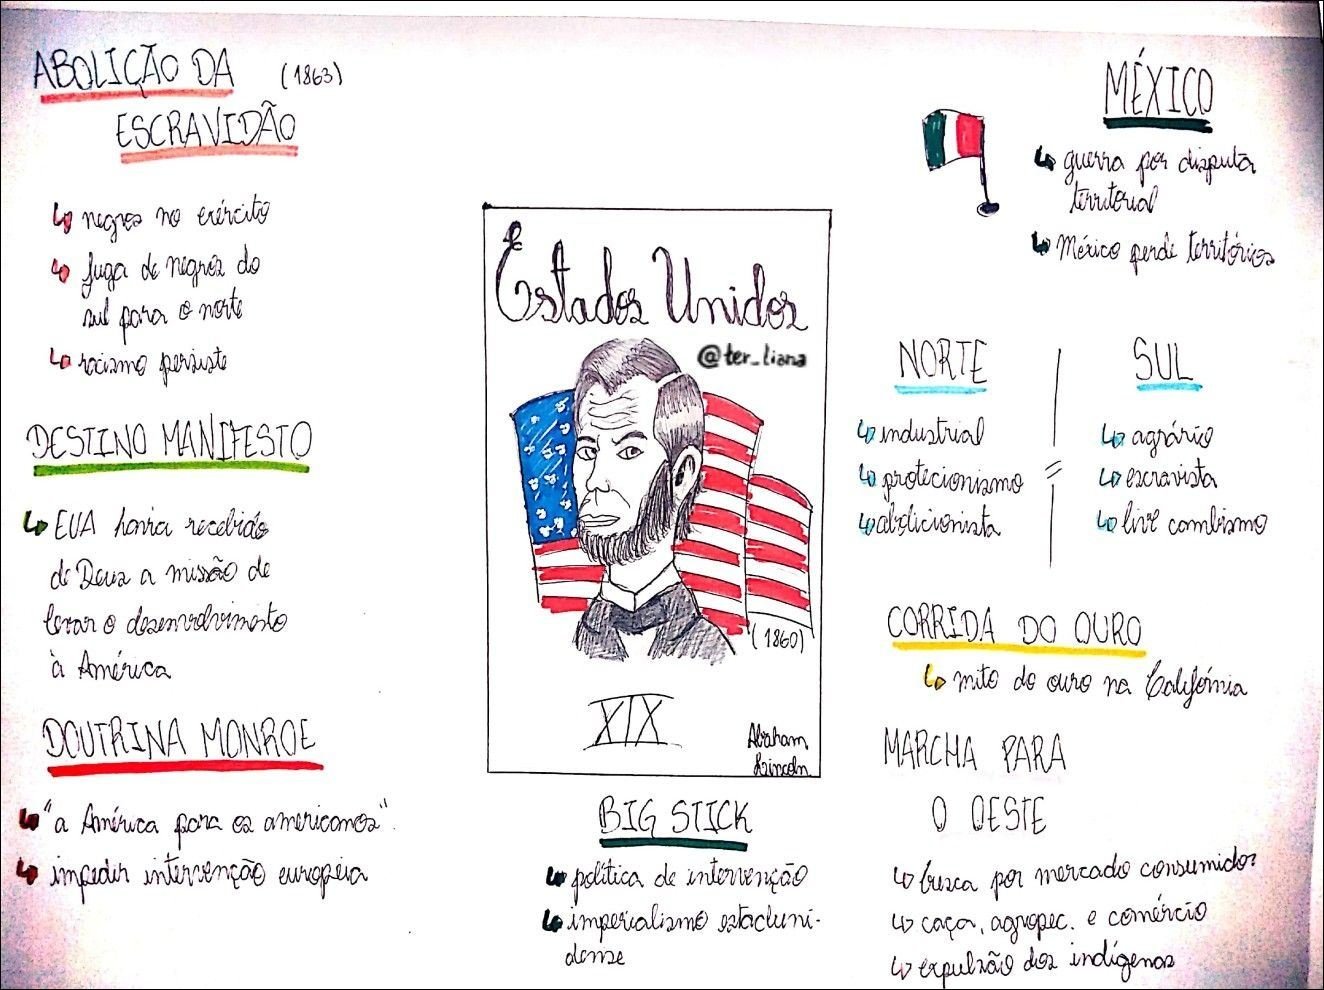 ABOLIÇÃO DA (1863)
ESCRAVIDÃO
negros no exército
fuga de negros do
sul para o norte
racismo persiste
DESTINO MANIFESTO
EUA havia recebido
de Deus a missão de
levar o desenvolvimento
à América
DOUTRINA MONROE
"a América para os americanos".
impedir intervenção européia
Estados Unidos
@ter_liana
(1860)
XIX
Abraham
Lincoln
BIG STICK
política de intervenção
imperialismo estaduni-
dense
MÉXICO
guerra por disputa
territorial
México perde territórios
NORTE
industrial
protecionismo
abolicionista
SUL
agrário
escravista
livre cambismo
CORRIDA DO OURO
mito do ouro na Califórnia
MARCHA PARA
O OESTE
busca por mercado consumidor
caça, agropec. e comércio
expulsão dos indígenas